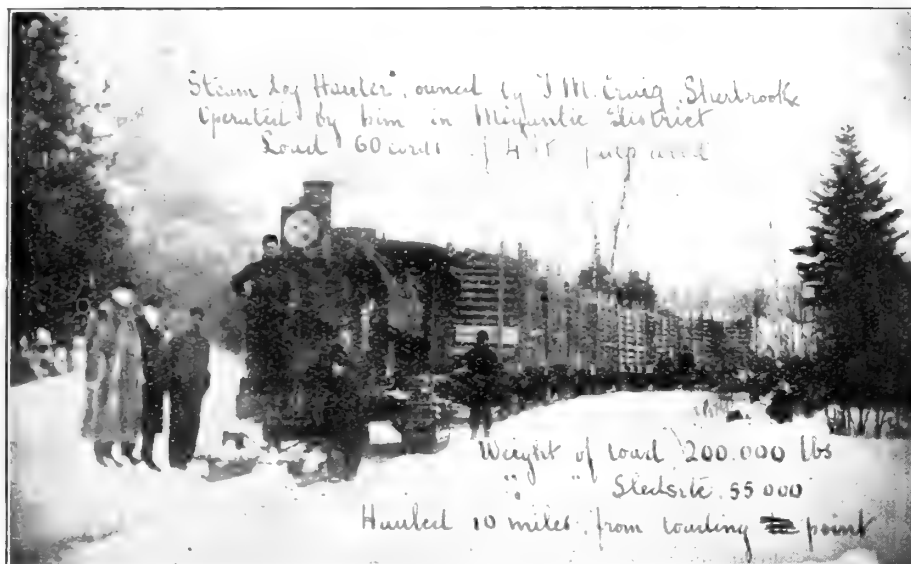 Steam Log Hauler, owned by J M. Craig, Sherbrooke
Operated by him in Megantic District
Load 60 cords of 4 ft pulp wood
Weight of load 200.000 lbs
" " Sleds etc. 55 000
Hauled 10 miles from loading point